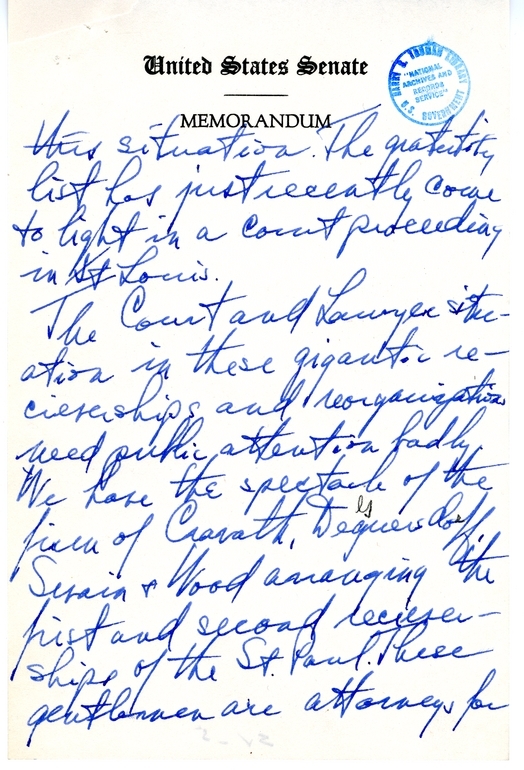 United States Senate
MEMORANDUM
HARRY S. TRUMAN LIBRARY
"NATIONAL
ARCHIVES AND
RECORDS
SERVICE"
U.S. GOVERNMENT
this situation. The gratuity
list has just recently come
to light in a court proceeding
in St Louis.
The Court and Lawyer situ-
ation in these gigantic re-
cieverships and reorganizations
need public attention badly.
We have the spectacle of the
firm of Cravath, Degersdorff,
Swain & Wood arranging the
first and second reciever-
ships of the St. Paul. These
gentlemen are attorneys for